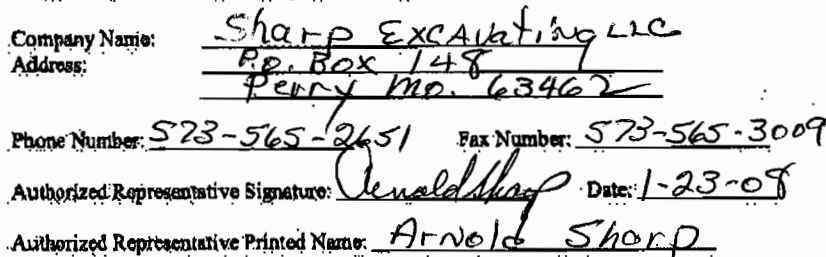 Company Name: Sharp Excavating LLC
Address: P.O. Box 148
Perry Mo. 63462
Phone Number: 573-565-2651 Fax Number: 573-565-3009
Authorized Representative Signature: Arnold Sharp Date: 1-23-08
Authorized Representative Printed Name: Arnold Sharp